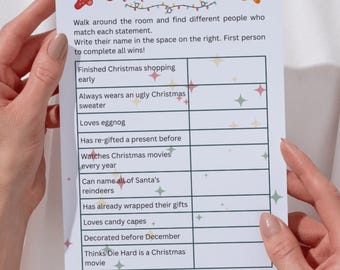 Walk around the room and find different people who
match each statement.
Write their name in the space on the right. First person
to complete all wins!
Finished Christmas shopping
early
Always wears an ugly Christmas
sweater
Loves eggnog
Has re-gifted a present before
Watches Christmas movies
every year
Can name all of Santa's
reindeers
Has already wrapped their gifts
Loves candy capes
Decorated before December
Thinks Die Hard is a Christmas
movie